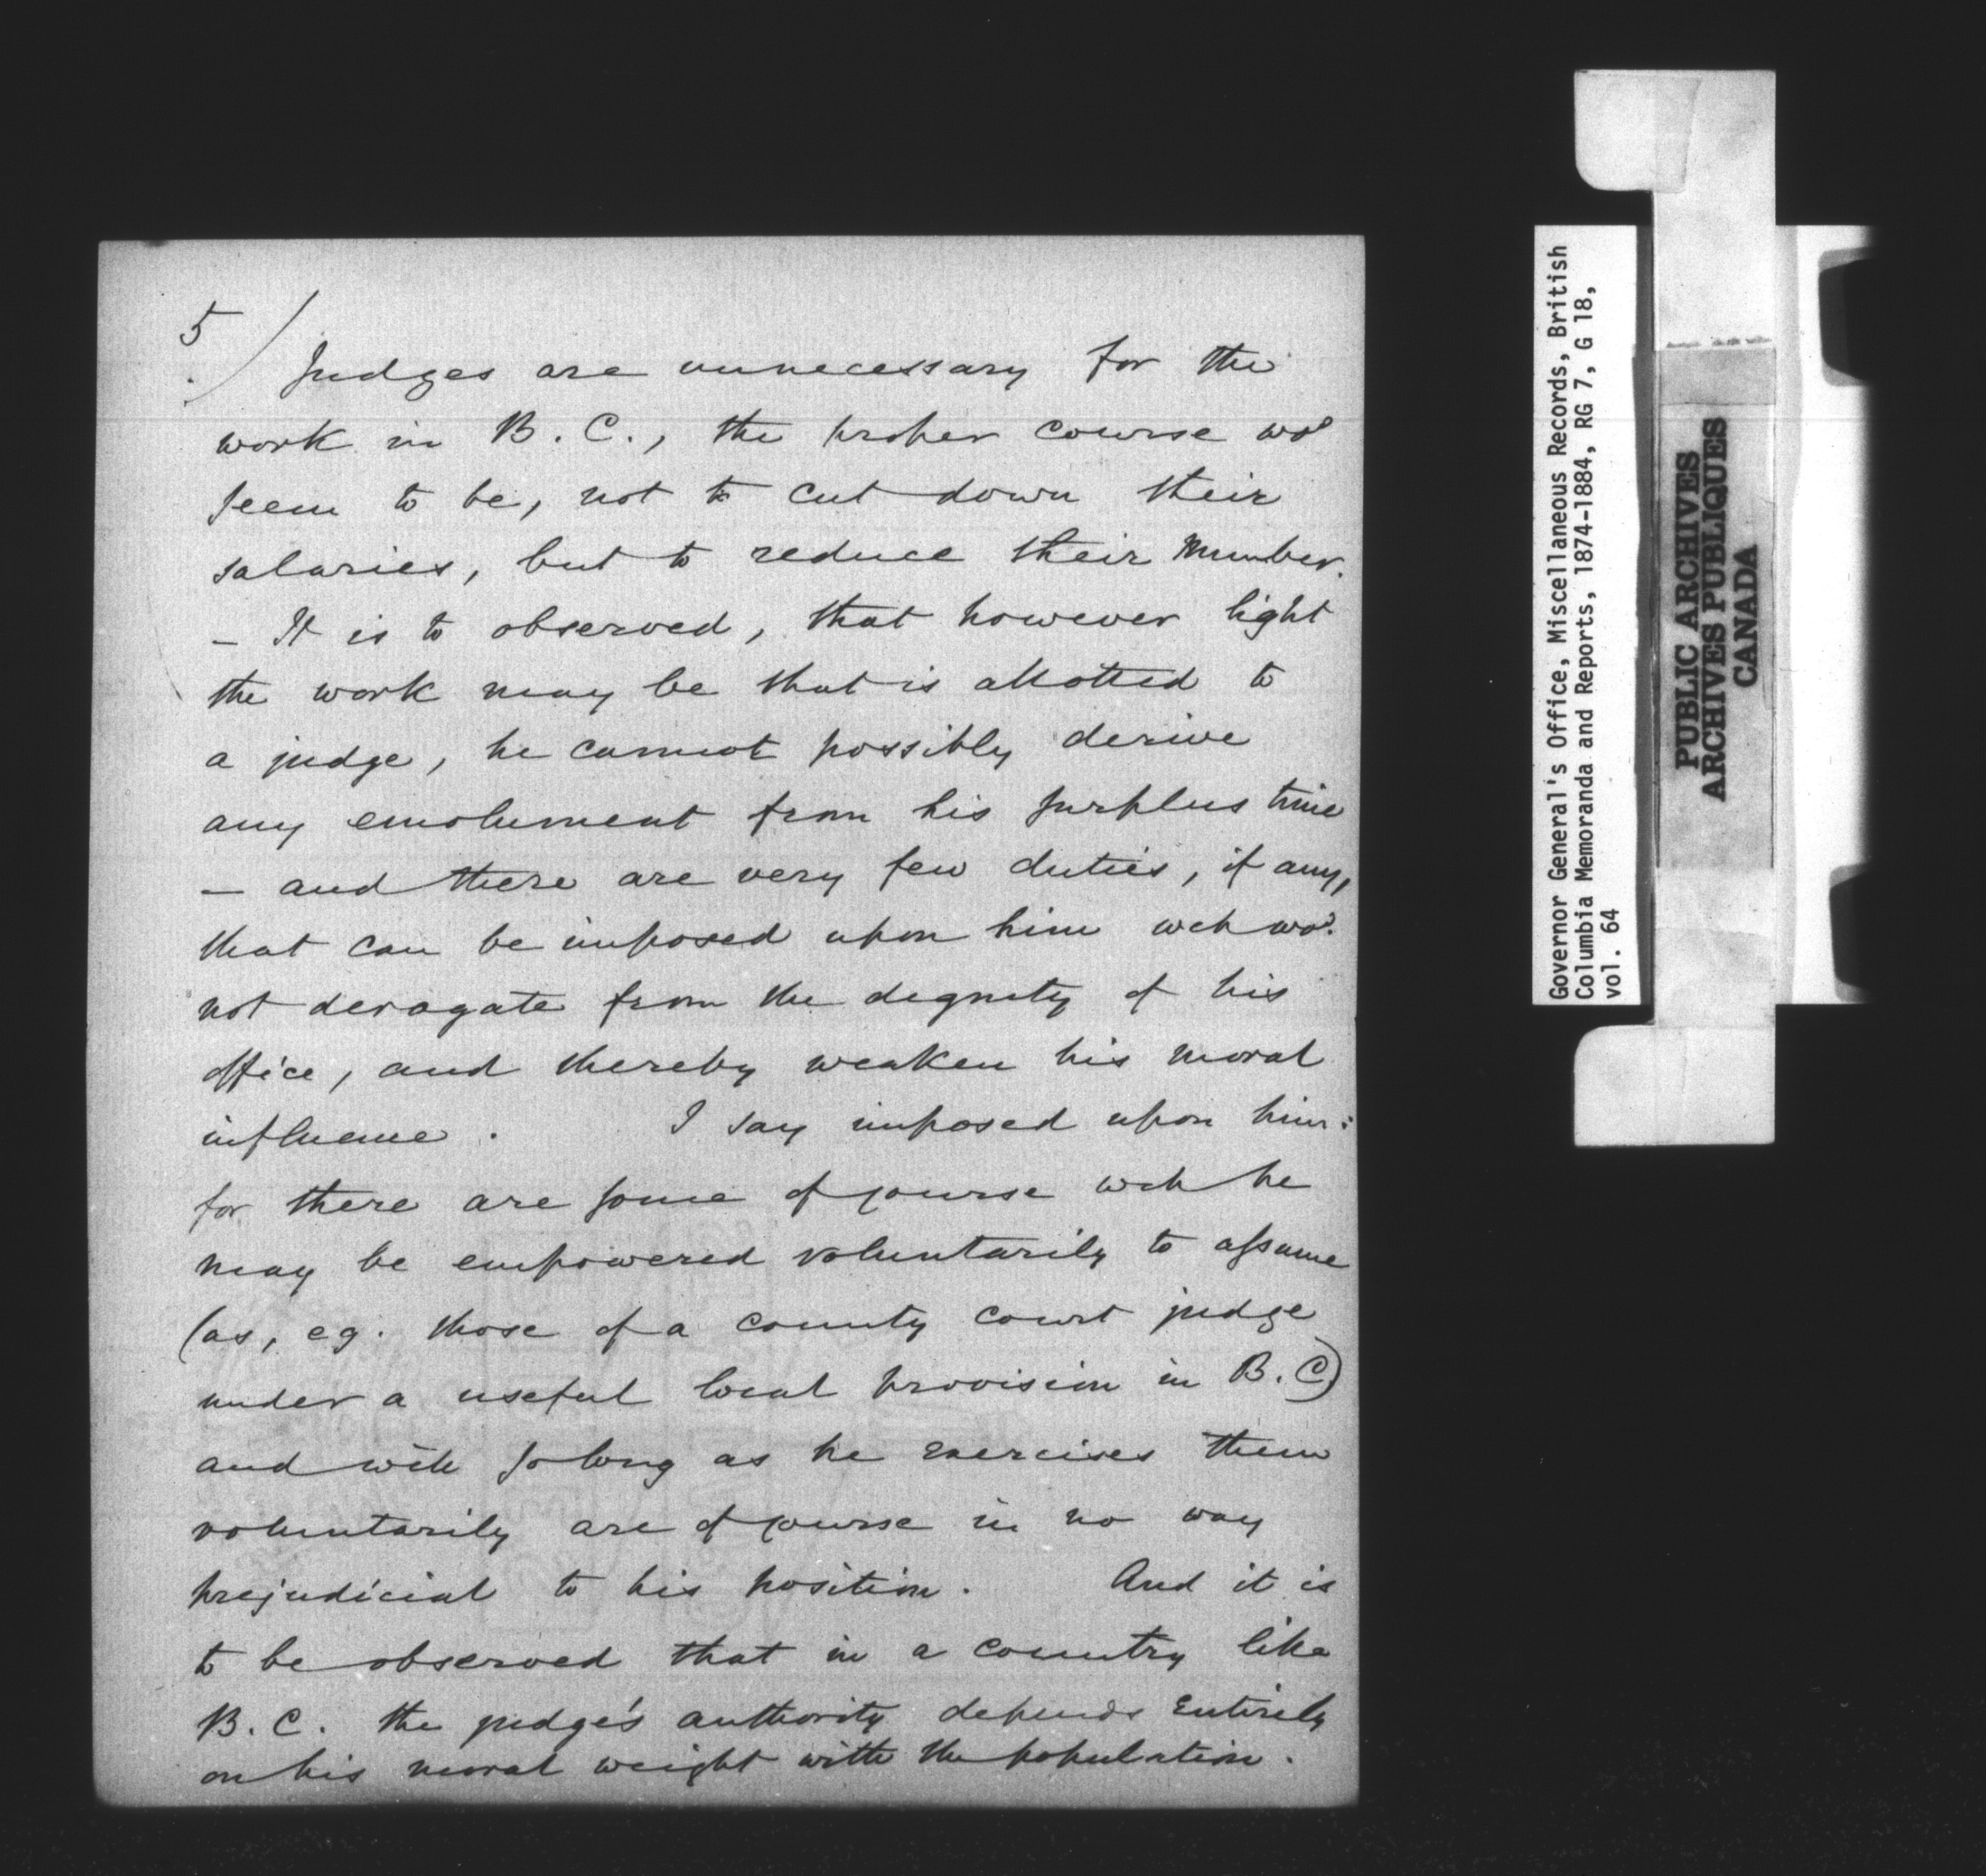 5/
Judges are unnecessary for the
work in B.C., the proper course wod
seem to be, not to cut down their
salaries, but to reduce their number.
– It is to observed, that however light
the work may be that is allotted to
a judge, he cannot possibly derive
any emolument from his surplus time
– and there are very few duties, if any,
that can be imposed upon him wch wod.
not derogate from the dignity of his
office, and thereby weaken his moral
influence. I say imposed upon him:
for there are some of course wch he
may be empowered voluntarily to assume
(as, eg. those of a county court judge
under a useful local provision in B.C)
and wch so long as he exercises them
voluntarily are of course in no way
prejudicial to his position. And it is
to be observed that in a country like
B.C. the judge's authority depends entirely
on his moral weight with the population.
Governor General's Office, Miscellaneous Records, British
Columbia Memoranda and Reports, 1874-1884, RG 7, G 18,
vol. 64
PUBLIC ARCHIVES
ARCHIVES PUBLIQUES
CANADA